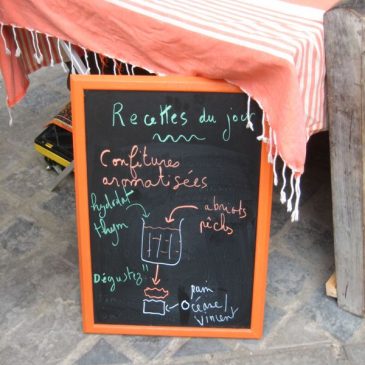 Recettes du jour
Confitures
aromatisées
hydrolat
thym
abricots
pêches
Dégustez !!
pain
Océane /
Vincent